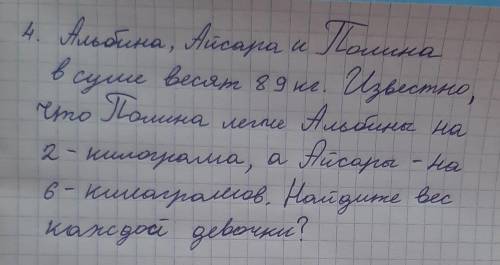 4. Альбина, Айсара и Полина
в суме весят 89 кг. Известно,
что Полина легче Альбины на
2-килограма, а Айсары - на
6-килаграмов. Найдите вес
каждой девочки?